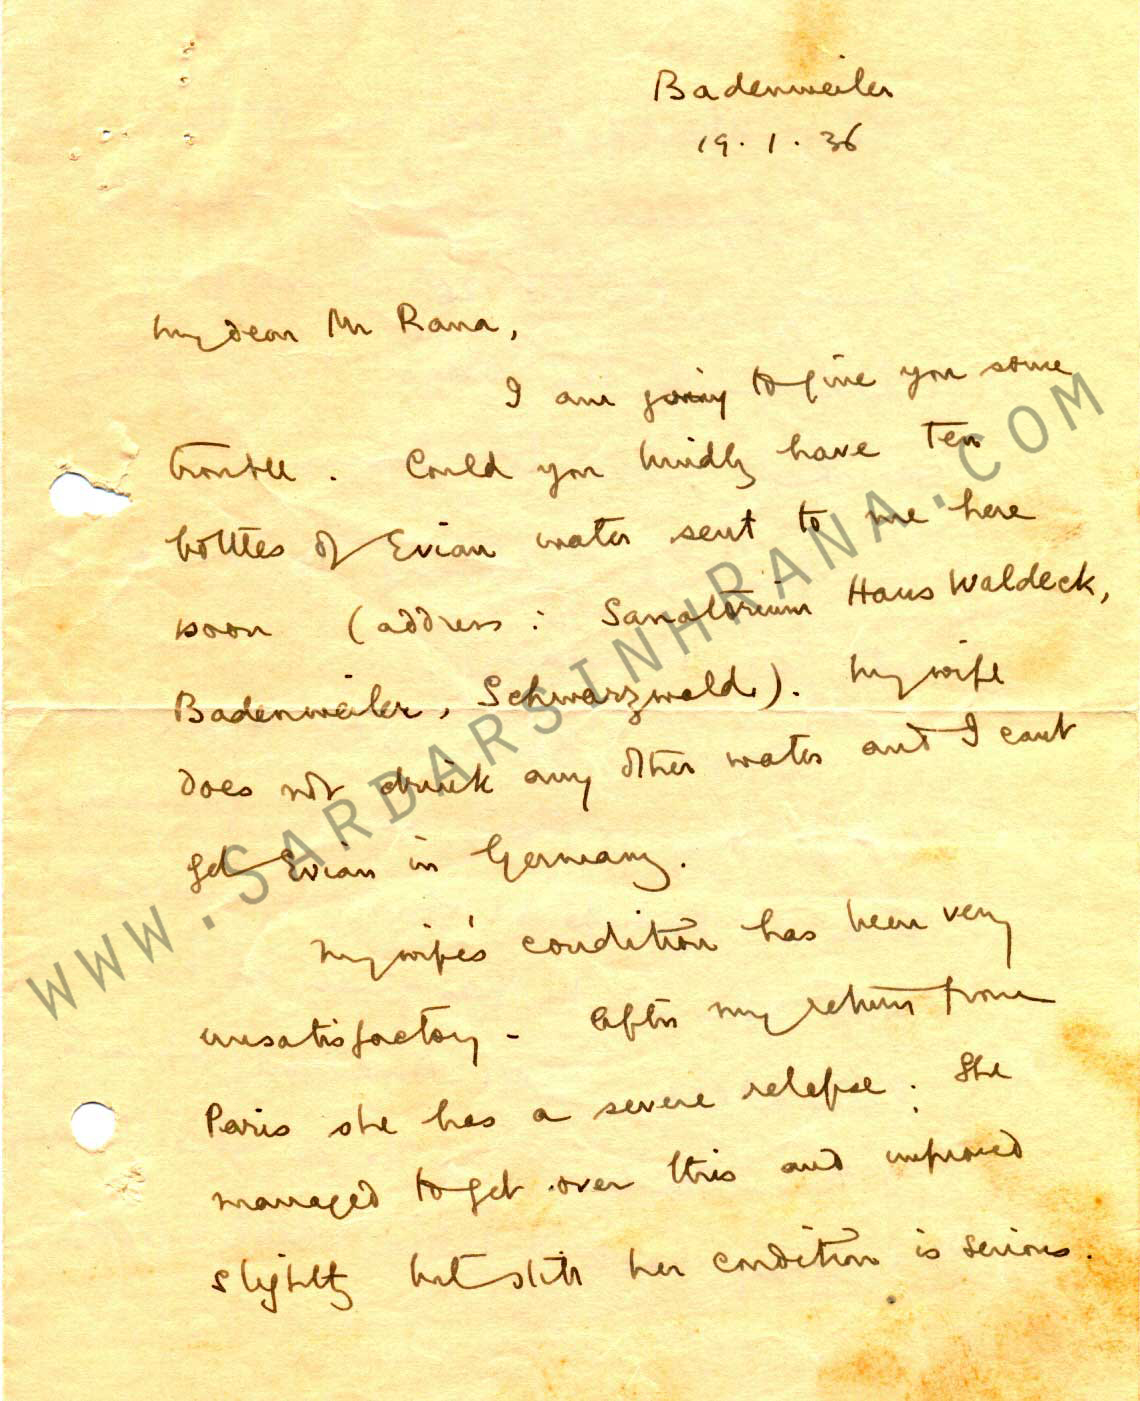 Badenweiler
19.1.36
My dear Mr Rana,
I am going to give you some
trouble. Could you kindly have ten
bottles of Evian water sent to me here
soon (address: Sanatorium Haus Waldeck,
Badenweiler, Schwarzwald). My wife
does not drink any other water and I cant
get Evian in Germany.
My wife's condition has been very
unsatisfactory - After my return from
Paris she has a severe relapse. She
managed to get over this and improved
slightly but still her condition is serious.
WWW.SARDARSINHRANA.COM